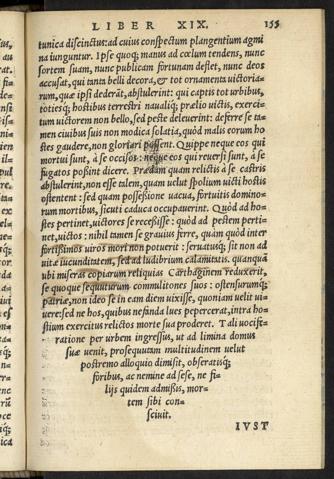 LIBER XIX. 155
tunica discinctus: ad cuius conspectum plangentium agmi
na iunguntur. Ipse quoq; manus ad cœlum tendens, nunc
sortem suam, nunc publicam fortunam deflet, nunc deos
accusat, qui tanta belli decora, & tot ornamenta victoria-
rum, quæ ipsi dederāt, abstulerint: qui captis tot urbibus,
totiesq; hostibus terrestri naualiq; prælio victis, exerci-
tum victorem non bello, sed peste deleuerint: deferre se ta-
men ciuibus suis non modica solatia, quòd malis eorum ho
stes gaudere, non gloriari possent. Quippe neque eos qui
mortui sunt, à se occisos: neque eos qui reuersi sunt, à se
fugatos possint dicere. Prædam quam relictis à se castris
abstulerint, non esse talem, quam uelut spolium victi hostis
ostentent: sed quam possessione uacua, fortuitis domino-
rum mortibus, sicuti caduca occupauerint. Quòd ad ho-
stes pertinet, uictores se recessisse: quòd ad pestem perti-
net, uictos: nihil tamen se grauius ferre, quàm quòd inter
fortissimos uiros mori non potuerit: seruatusq; sit non ad
uitæ iucunditatem, sed ad ludibrium calamitatis. quanquā
ubi miseras copiarum reliquias Carthaginem reduxerit,
se quoque sequuturum commilitones suos: ostensurumq;
patriæ, non ideo se in eam diem uixisse, quoniam uelit ui-
uere: sed ne hos, quibus nefanda lues pepercerat, intra ho-
stium exercitus relictos morte sua proderet. Tali uocife-
ratione per urbem ingressus, ut ad limina domus
suæ uenit, prosequutam multitudinem uelut
postremo alloquio dimisit, obseratisq;
foribus, ac nemine ad sese, ne fi-
lijs quidem admissis, mor-
tem sibi con-
sciuit.
IVST